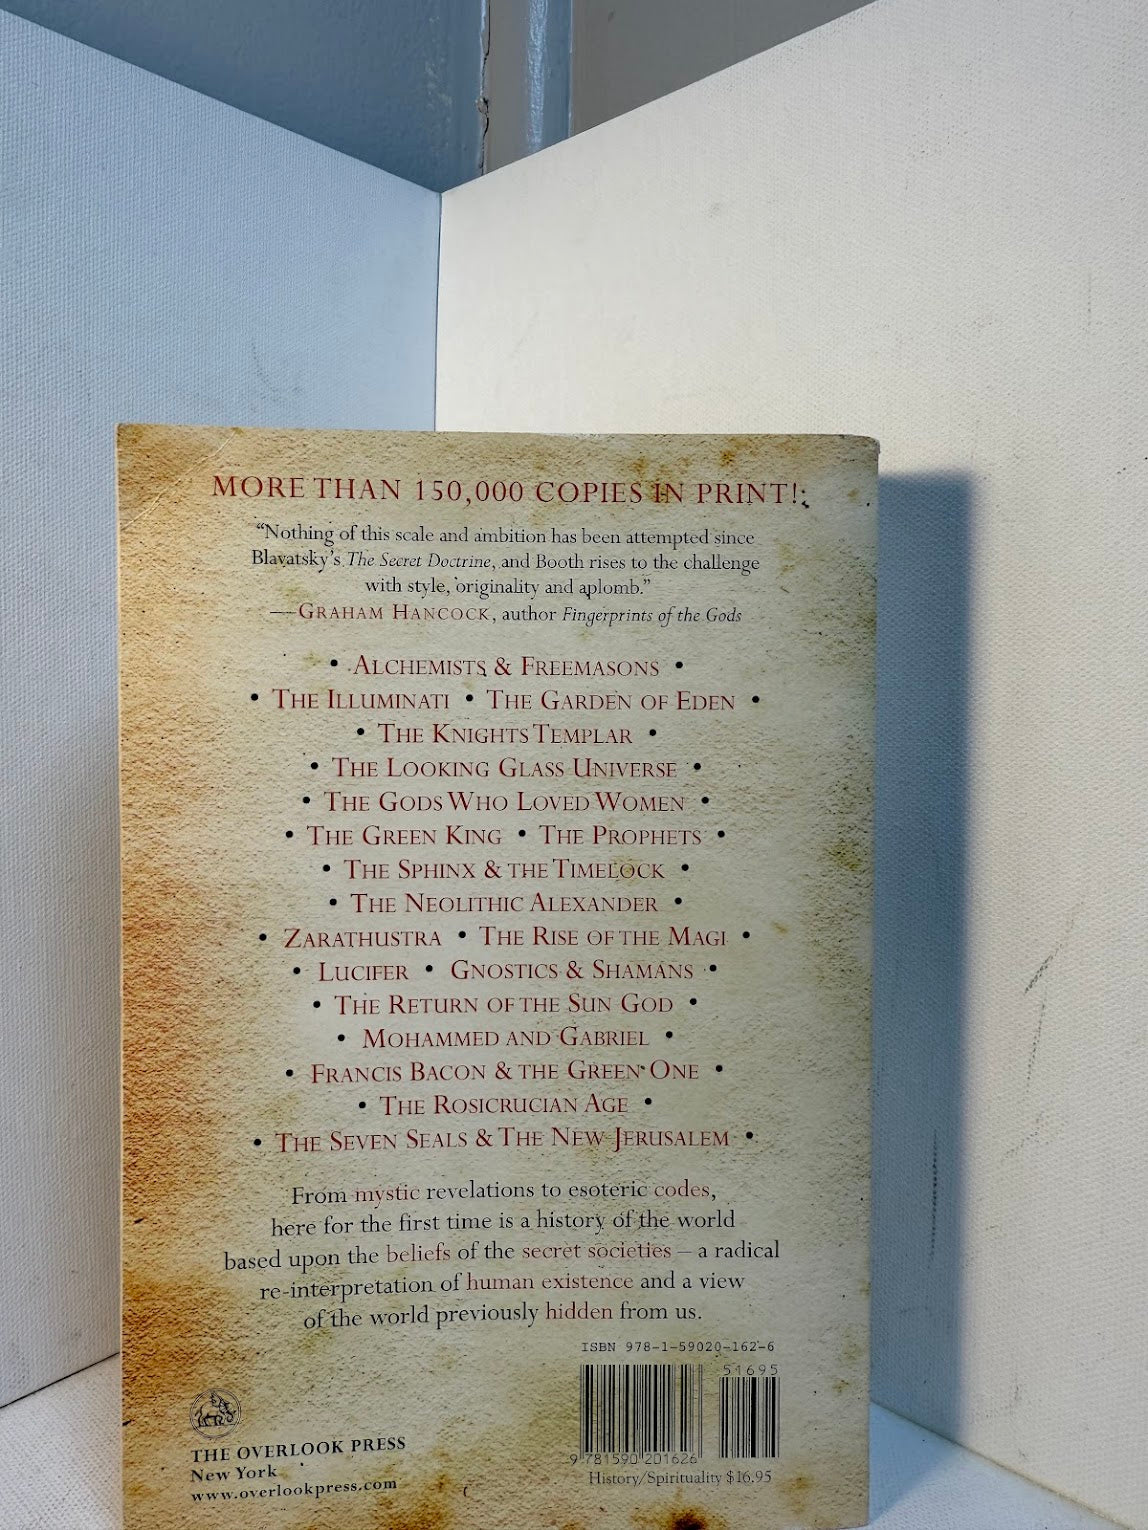 MORE THAN 150,000 COPIES IN PRINT!
“Nothing of this scale and ambition has been attempted since
Blavatsky's The Secret Doctrine, and Booth rises to the challenge
with style, originality and aplomb.”
—GRAHAM HANCOCK, author Fingerprints of the Gods
• ALCHEMISTS & FREEMASONS •
• THE ILLUMINATI • THE GARDEN OF EDEN •
• THE KNIGHTS TEMPLAR •
• THE LOOKING GLASS UNIVERSE •
• THE GODS WHO LOVED WOMEN •
• THE GREEN KING • THE PROPHETS •
• THE SPHINX & THE TIMELOCK •
• THE NEOLITHIC ALEXANDER •
• ZARATHUSTRA • THE RISE OF THE MAGI •
• LUCIFER • GNOSTICS & SHAMANS •
• THE RETURN OF THE SUN GOD •
• MOHAMMED AND GABRIEL •
• FRANCIS BACON & THE GREEN ONE •
• THE ROSICRUCIAN AGE •
• THE SEVEN SEALS & THE NEW JERUSALEM •
From mystic revelations to esoteric codes,
here for the first time is a history of the world
based upon the beliefs of the secret societies – a radical
re-interpretation of human existence and a view
of the world previously hidden from us.
ISBN 978-1-59020-162-6
51695
9 781590 201626
History/Spirituality $16.95
THE OVERLOOK PRESS
New York
www.overlookpress.com